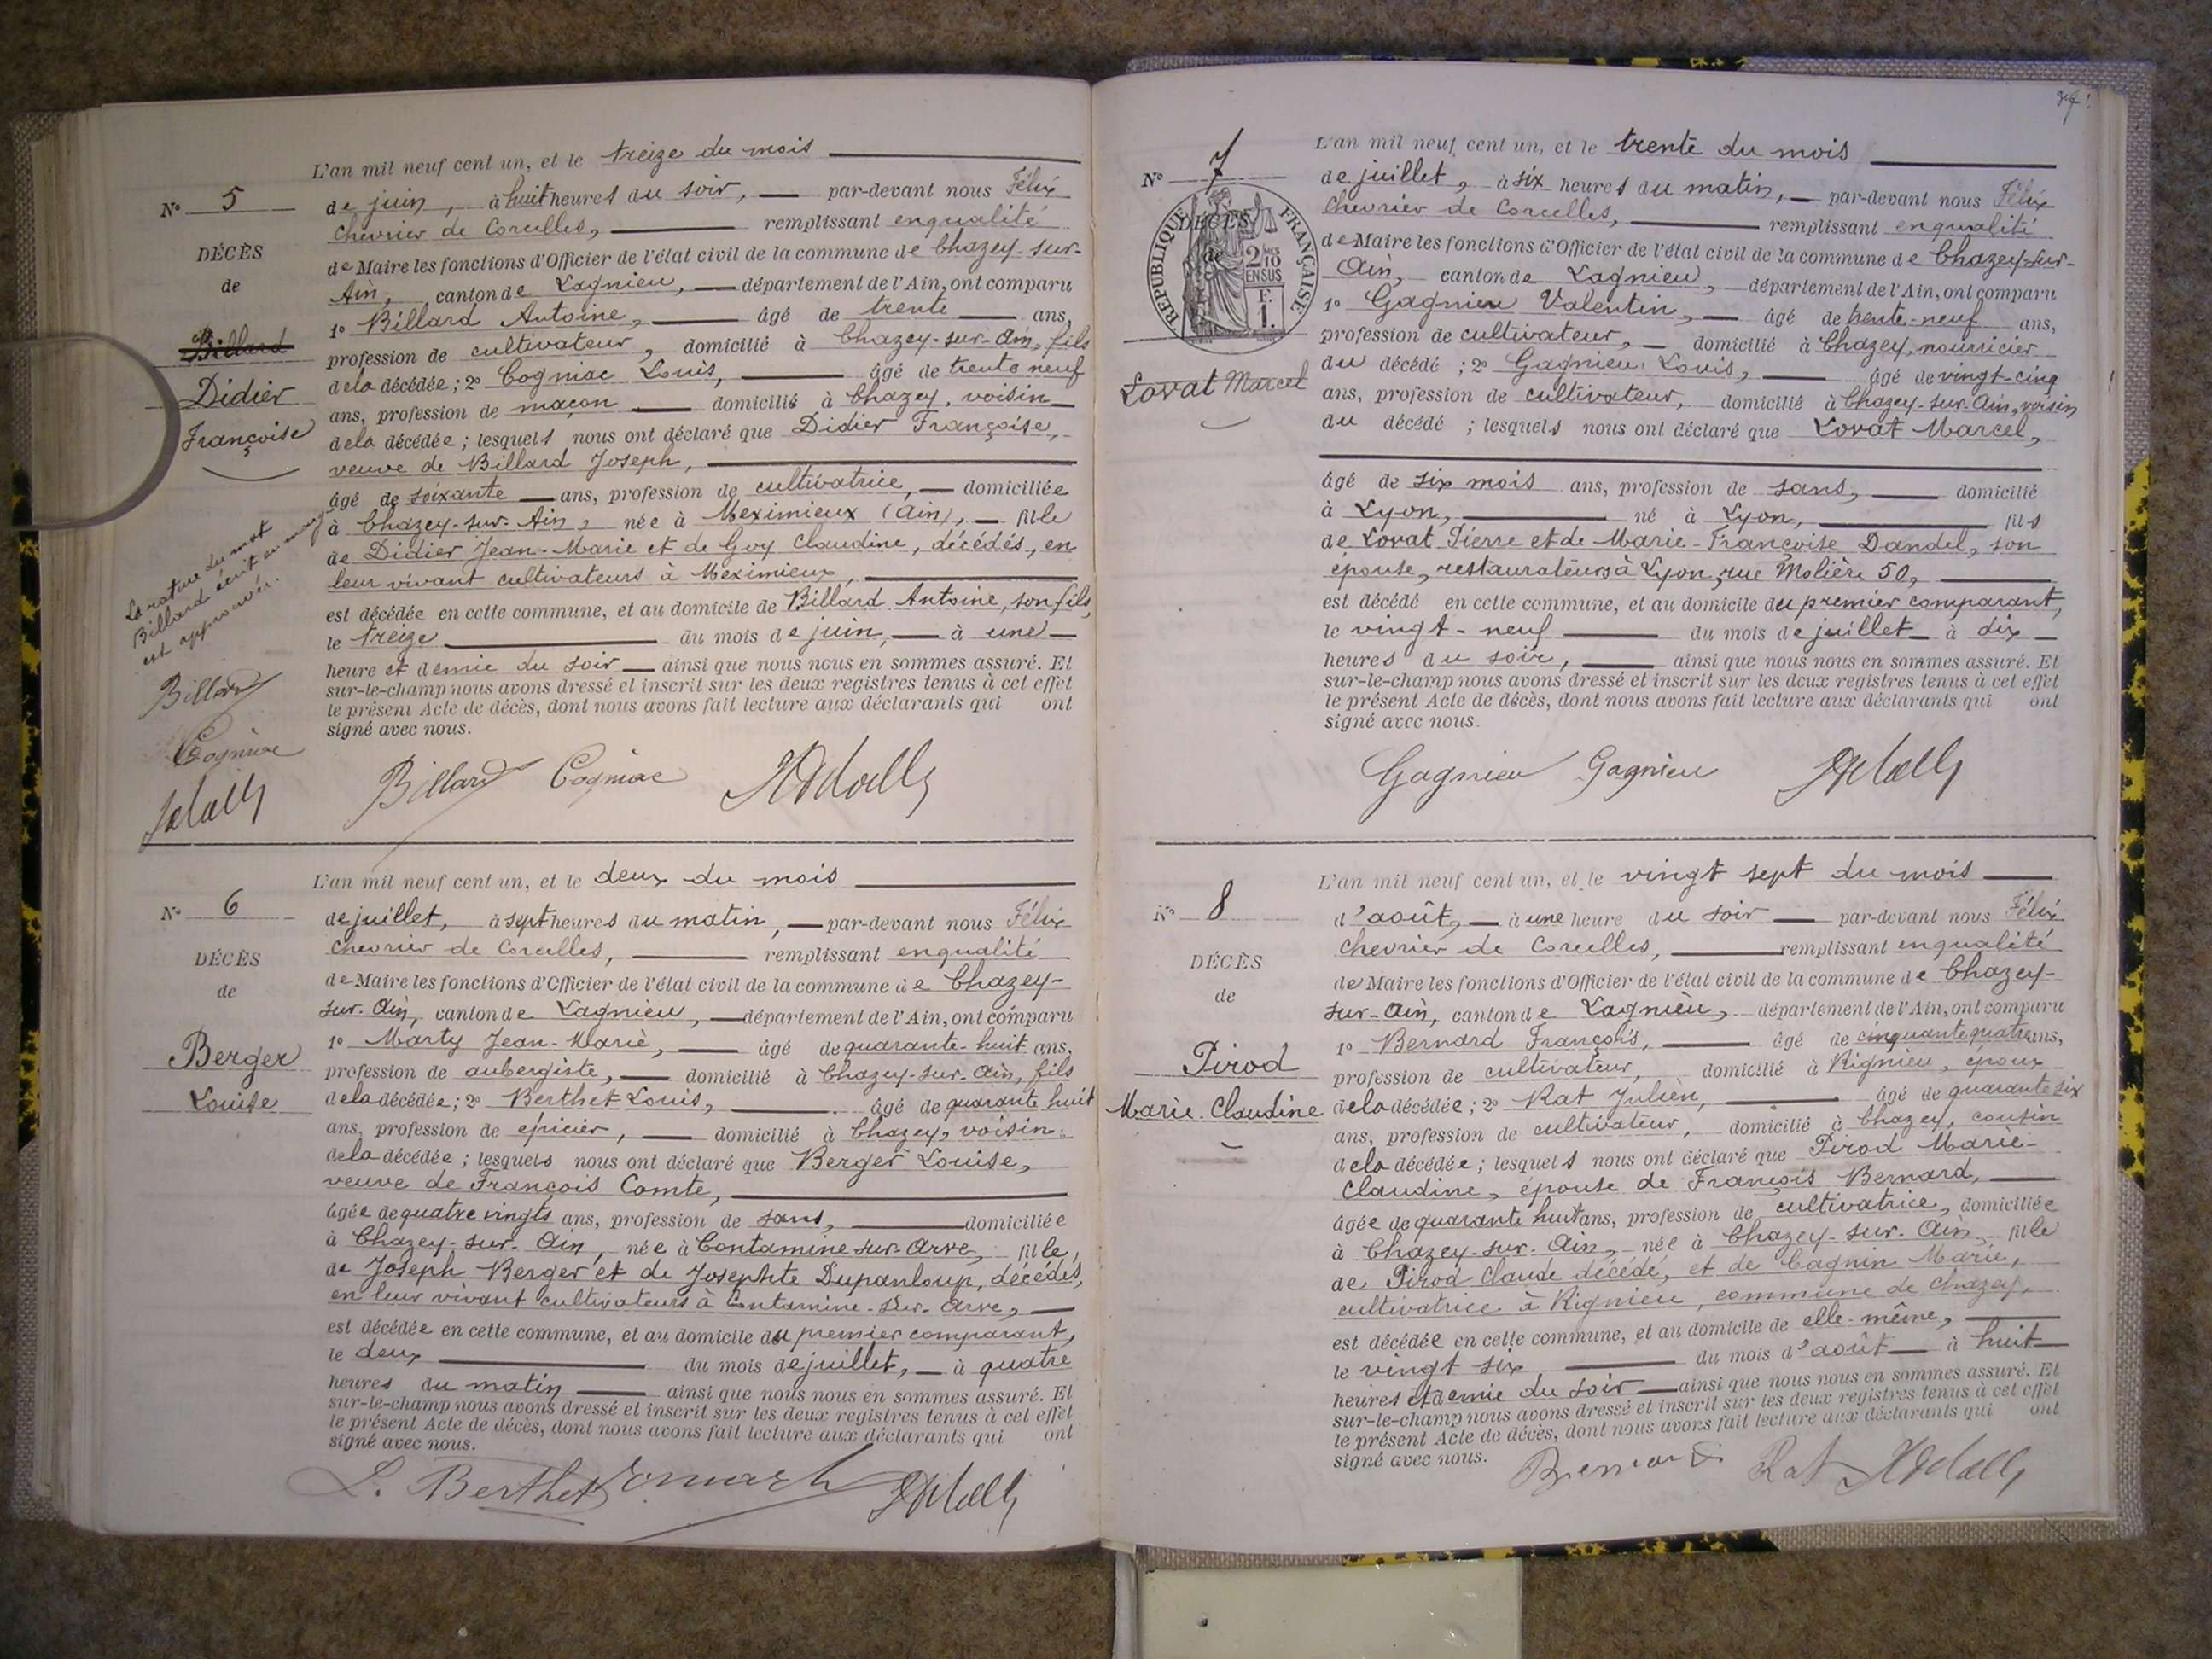 L'an mil neuf cent un, et le treize du mois
N° 5
de juin, à huit heures du soir, par-devant nous Félix
Chevrier de Corcelles, remplissant en qualité
DÉCÈS
de Maire les fonctions d'Officier de l'état civil de la commune de Chazey-sur-
de
Ain, canton de Lagnieu, département de l'Ain, ont comparu
1° Billard Antoine, âgé de trente ans,
Billard
profession de cultivateur, domicilié à Chazey-sur-Ain, fils
de la décédée; 2° Cogniac Louis, âgé de trente neuf
Didier
ans, profession de maçon domicilié à Chazey, voisin
Françoise
de la décédée; lesquels nous ont déclaré que Didier Françoise,
veuve de Billard Joseph,
âgé de soixante ans, profession de cultivatrice, domiciliée
à Chazey-sur-Ain, née à Meximieux (Ain), fille
de Didier Jean-Marie et de Guy Claudine, décédés, en
leur vivant cultivateurs à Meximieux,
La rature du mot
Billard écrit en marge
est approuvée.
est décédée en cette commune, et au domicile de Billard Antoine, son fils,
le treize du mois de juin, à une
heure et demie du soir ainsi que nous nous en sommes assuré. Et
sur-le-champ nous avons dressé et inscrit sur les deux registres tenus à cet effet
le présent Acte de décès, dont nous avons fait lecture aux déclarants qui ont
signé avec nous.
Billard
Cogniac
Billard Cogniac
L'an mil neuf cent un, et le deux du mois
N° 6
de juillet, à sept heures du matin, par-devant nous Félix
Chevrier de Corcelles, remplissant en qualité
DÉCÈS
de Maire les fonctions d'Officier de l'état civil de la commune de Chazey-
de
sur-Ain, canton de Lagnieu, département de l'Ain, ont comparu
1° Marty Jean-Marie, âgé de quarante-huit ans,
Berger
profession de aubergiste, domicilié à Chazey-sur-Ain, fils
Louise
de la décédée; 2° Berthet Louis, âgé de quarante huit
ans, profession de épicier, domicilié à Chazey, voisin
de la décédée; lesquels nous ont déclaré que Berger Louise,
veuve de François Comte,
âgée de quatre vingts ans, profession de sans, domiciliée
à Chazey-sur-Ain, née à Contamine sur-Arve, fille,
de Joseph Berger et de Josephte Dupanloup, décédés,
en leur vivant cultivateurs à Contamine-sur-Arve,
est décédée en cette commune, et au domicile du premier comparant,
le deux du mois de juillet, à quatre
heures du matin ainsi que nous nous en sommes assuré. Et
sur-le-champ nous avons dressé et inscrit sur les deux registres tenus à cet effet
le présent Acte de décès, dont nous avons fait lecture aux déclarants qui ont
signé avec nous.
L. Berthet
L'an mil neuf cent un, et le trente du mois
N° 7
de juillet, à six heures du matin, par-devant nous Félix
Chevrier de Corcelles, remplissant en qualité
RÉPUBLIQUE FRANÇAISE
DÉCÈS
2/10 EN SUS
F. 1.
de
de Maire les fonctions d'Officier de l'état civil de la commune de Chazey-sur-
Ain, canton de Lagnieu, département de l'Ain, ont comparu
1° Gagnieu Valentin, âgé de trente-neuf ans,
profession de cultivateur, domicilié à Chazey, nourricier
Lovat Marcel
du décédé; 2° Gagnieu Louis, âgé de vingt-cinq
ans, profession de cultivateur, domicilié à Chazey-sur-Ain, voisin
du décédé; lesquels nous ont déclaré que Lovat Marcel,
âgé de six mois ans, profession de sans, domicilié
à Lyon, né à Lyon, fils
de Lovat Pierre et de Marie-Françoise Dandel, son
épouse, restaurateurs à Lyon, rue Molière 50,
est décédé en cette commune, et au domicile du premier comparant,
le vingt-neuf du mois de juillet à dix
heures du soir, ainsi que nous nous en sommes assuré. Et
sur-le-champ nous avons dressé et inscrit sur les deux registres tenus à cet effet
le présent Acte de décès, dont nous avons fait lecture aux déclarants qui ont
signé avec nous.
Gagnieu Gagnieu
L'an mil neuf cent un, et le vingt sept du mois
N° 8
d'août, à une heure du soir par-devant nous Félix
Chevrier de Corcelles, remplissant en qualité
DÉCÈS
de Maire les fonctions d'Officier de l'état civil de la commune de Chazey-
de
sur-Ain, canton de Lagnieu, département de l'Ain, ont comparu
1° Bernard François, âgé de cinquante quatre ans,
Pirod
profession de cultivateur, domicilié à Rignieu, époux
Marie-Claudine
de la décédée; 2° Rat Julien, âgé de quarante six
ans, profession de cultivateur, domicilié à Chazey, cousin
de la décédée; lesquels nous ont déclaré que Pirod Marie-
Claudine, épouse de François Bernard,
âgée de quarante huit ans, profession de cultivatrice, domiciliée
à Chazey-sur-Ain, née à Chazey-sur-Ain, fille
de Pirod Claude décédé, et de Cagnin Marie,
cultivatrice à Rignieu, commune de Chazey,
est décédée en cette commune, et au domicile de elle-même,
le vingt six du mois d'août à huit
heures et demie du soir ainsi que nous nous en sommes assuré. Et
sur-le-champ nous avons dressé et inscrit sur les deux registres tenus à cet effet
le présent Acte de décès, dont nous avons fait lecture aux déclarants qui ont
signé avec nous.
Bernard Rat